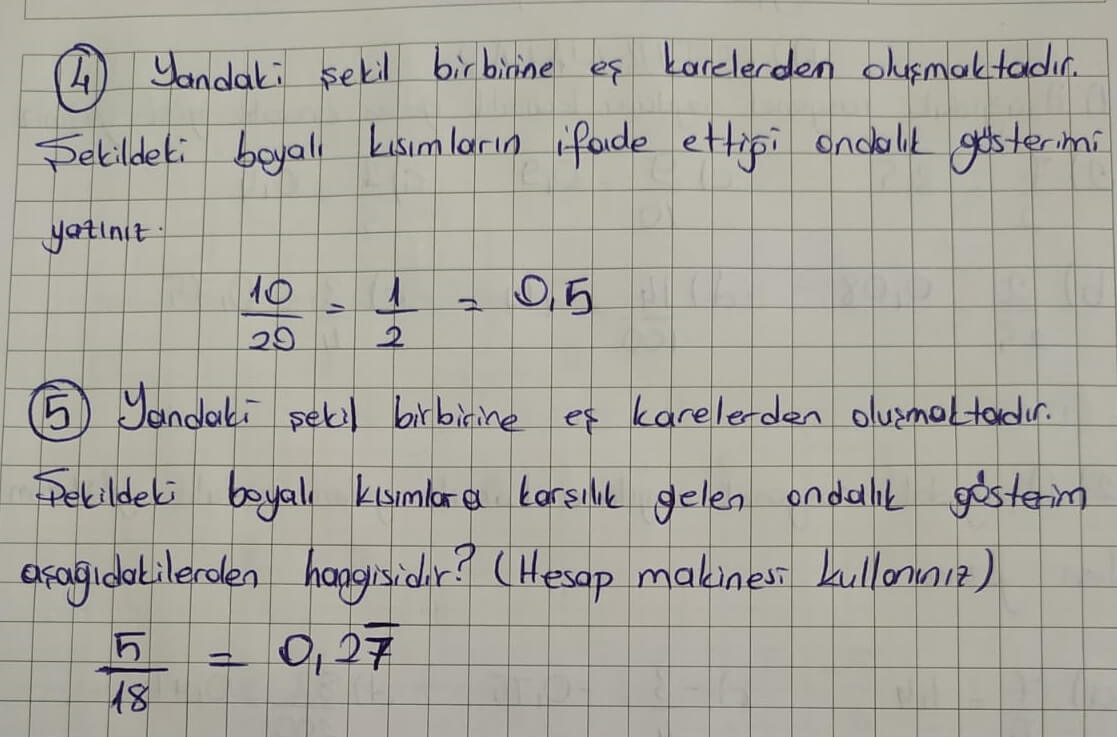 ④ Yandaki şekil birbirine eş karelerden oluşmaktadır.
Şekildeki boyalı kısımların ifade ettiği ondalık gösterimi
yazınız.
10/20 = 1/2 = 0,5
⑤ Yandaki şekil birbirine eş karelerden oluşmaktadır.
Şekildeki boyalı kısımlara karşılık gelen ondalık gösterim
aşağıdakilerden hangisidir? (Hesap makinesi kullanınız)
5/18 = 0,27̅